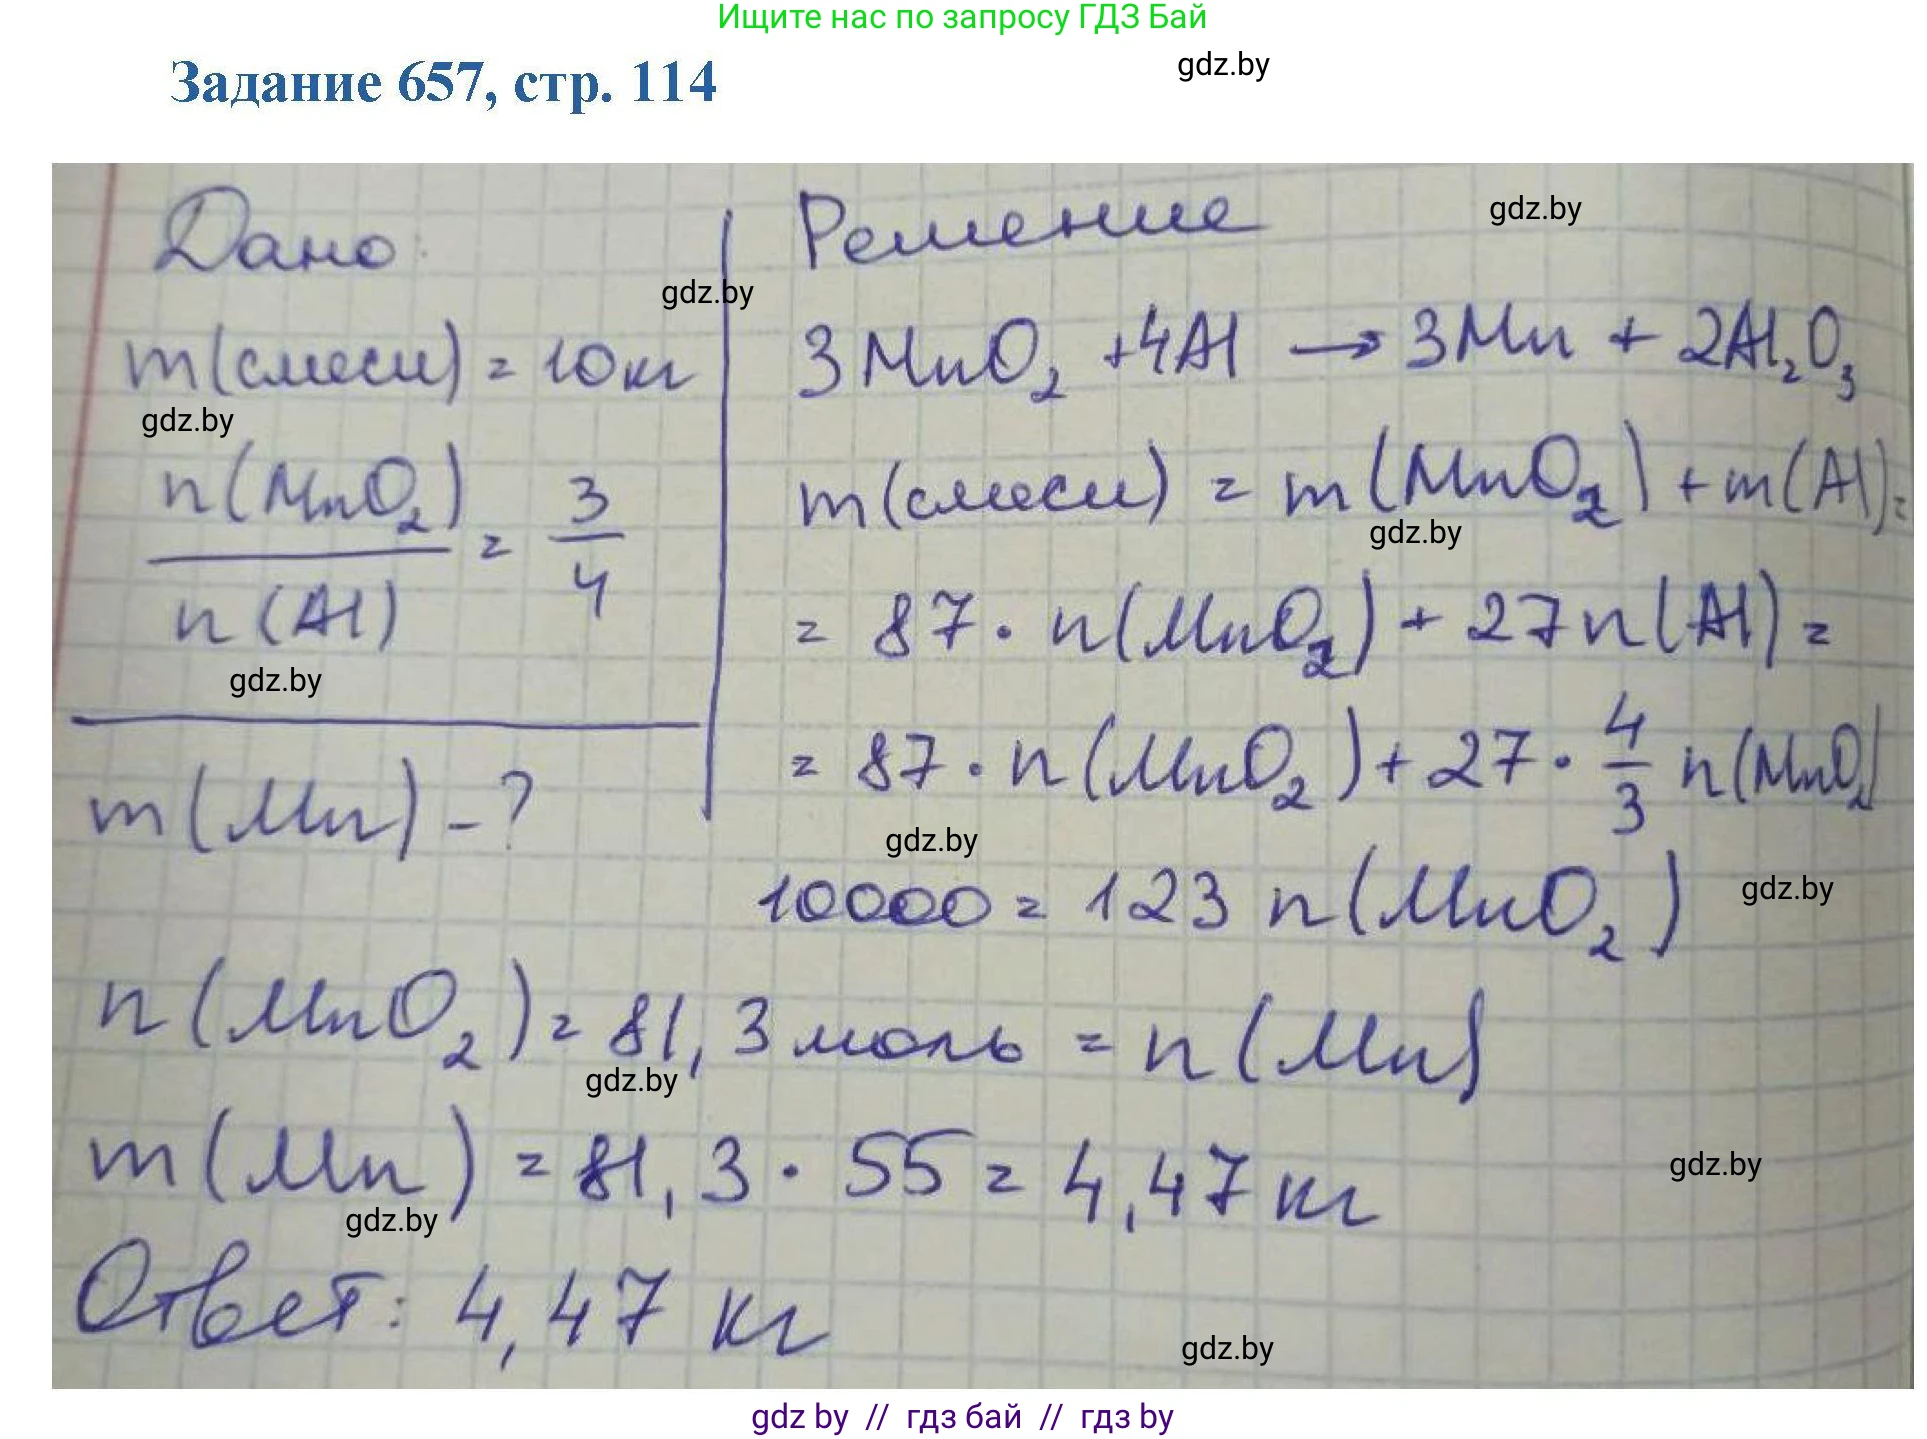 Ищите нас по запросу ГДЗ Бай
gdz.by
Задание 657, стр. 114
Дано:
m(смеси) = 10 кг
n(MnO₂)/n(Al) = 3/4
m(Mn) - ?
Решение
3MnO₂ + 4Al → 3Mn + 2Al₂O₃
m(смеси) = m(MnO₂) + m(Al) =
= 87 · n(MnO₂) + 27n(Al) =
= 87 · n(MnO₂) + 27 · 4/3 n(MnO₂)
10000 = 123 n(MnO₂)
n(MnO₂) = 81,3 моль = n(Mn)
m(Mn) = 81,3 · 55 = 4,47 кг
Ответ: 4,47 кг
gdz.by
gdz.by
gdz.by
gdz.by
gdz.by
gdz.by
gdz.by
gdz.by
gdz.by
gdz.by
gdz.by
gdz by // гдз бай // гдз by